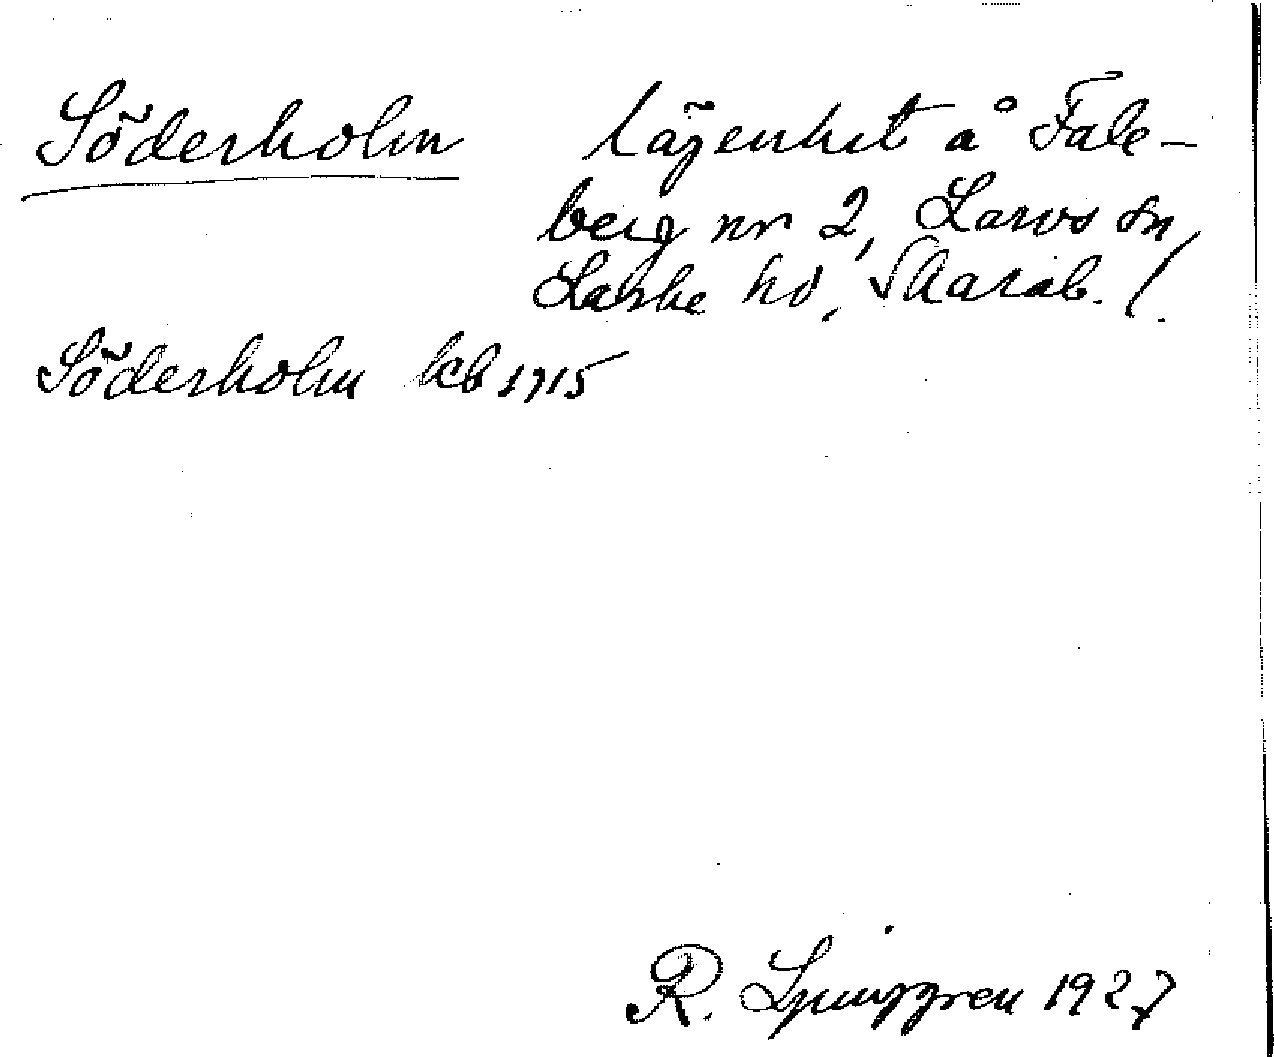 Söderholm lägenhet å Fale-
berg nr 2, Larvs sn,
Laske hd, Skarab. l.
Söderholm kb 1715
R. Ljunggren 1927